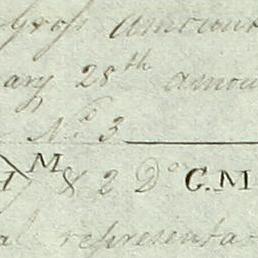 Gross amount
ary 28th amou
No 3
M & 2 Do C.M
al representa